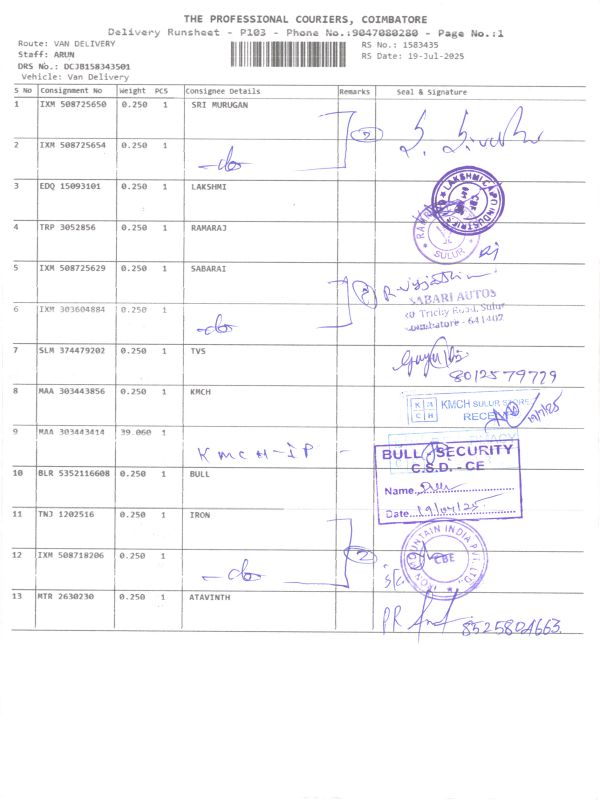 THE PROFESSIONAL COURIERS, COIMBATORE
Delivery Runsheet - P103 - Phone No.:9047080280 - Page No.:1
Route: VAN DELIVERY
Staff: ARUN
DRS No.: DCJB158343501
Vehicle: Van Delivery
RS No.: 1583435
RS Date: 19-Jul-2025
S No Consignment No Weight PCS Consignee Details Remarks Seal & Signature
1 IXM 508725650 0.250 1 SRI MURUGAN
2
2 IXM 508725654 0.250 1
-do-
3 EDQ 15093101 0.250 1 LAKSHMI
LAKSHMI CAPO INDUSTRIES
CBE
4 TRP 3052856 0.250 1 RAMARAJ
SULUR
5 IXM 508725629 0.250 1 SABARAI
2
SABARI AUTOS
Trichy Road, Sulur
Coimbatore - 641402
6 IXM 303604884 0.250 1
-do-
7 SLM 374479202 0.250 1 TVS
8012579779
8 MAA 303443856 0.250 1 KMCH
K M C H
KMCH SULUR STORE
19/7/25
9 MAA 303443414 39.060 1
KMCH-IP
BULL - SECURITY
C.S.D. - CE
Name
Date 19/07/25
10 BLR 5352116608 0.250 1 BULL
11 TNJ 1202516 0.250 1 IRON
IRON MOUNTAIN INDIA PVT. LTD.,
CBE
2
12 IXM 508718206 0.250 1
-do-
13 MTR 2630230 0.250 1 ATAVINTH
8525804663